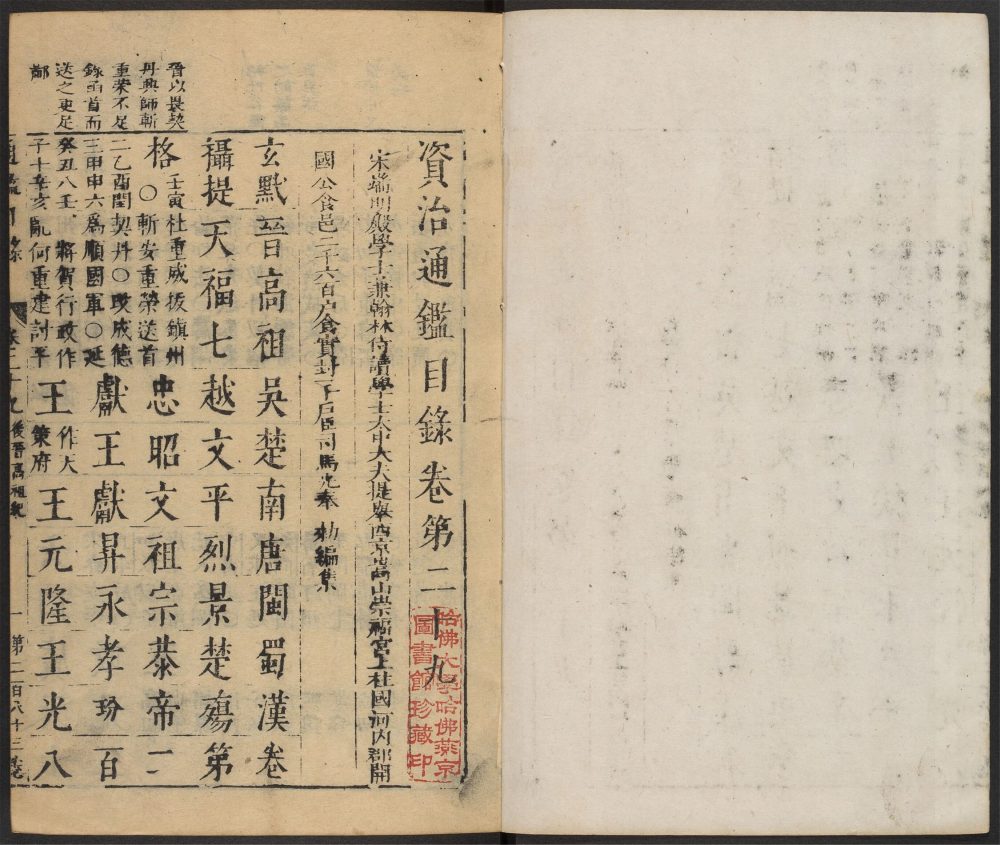 資治通鑑目錄卷第二十九
哈佛大學哈佛燕京
圖書館珍藏印
宋端明殿學士兼翰林侍讀學士太中大夫提舉西京嵩山崇福宮上柱國河內郡開
國公食邑二千六百戶食實封一千戶臣司馬光奉 勑編集
玄黓晉高祖吳楚南唐閩蜀漢卷
攝提天福七越文平烈景楚殤第
格 壬寅杜重威拔鎮州
○斬安重榮送首
忠昭文祖宗恭帝二
二乙酉閏契丹○改成德
三甲申六為順國軍○延
獻王獻昇永孝玢百
癸丑八壬 將賀行政作
子十辛亥亂何重建討平
王 作天
策府
王元隆王光八
晉以畏契
丹興師斬
重榮不足
錄函首而
送之更足
鄙
通鑑目錄
卷二十九 後晉高祖紀 一 第二百八十三卷